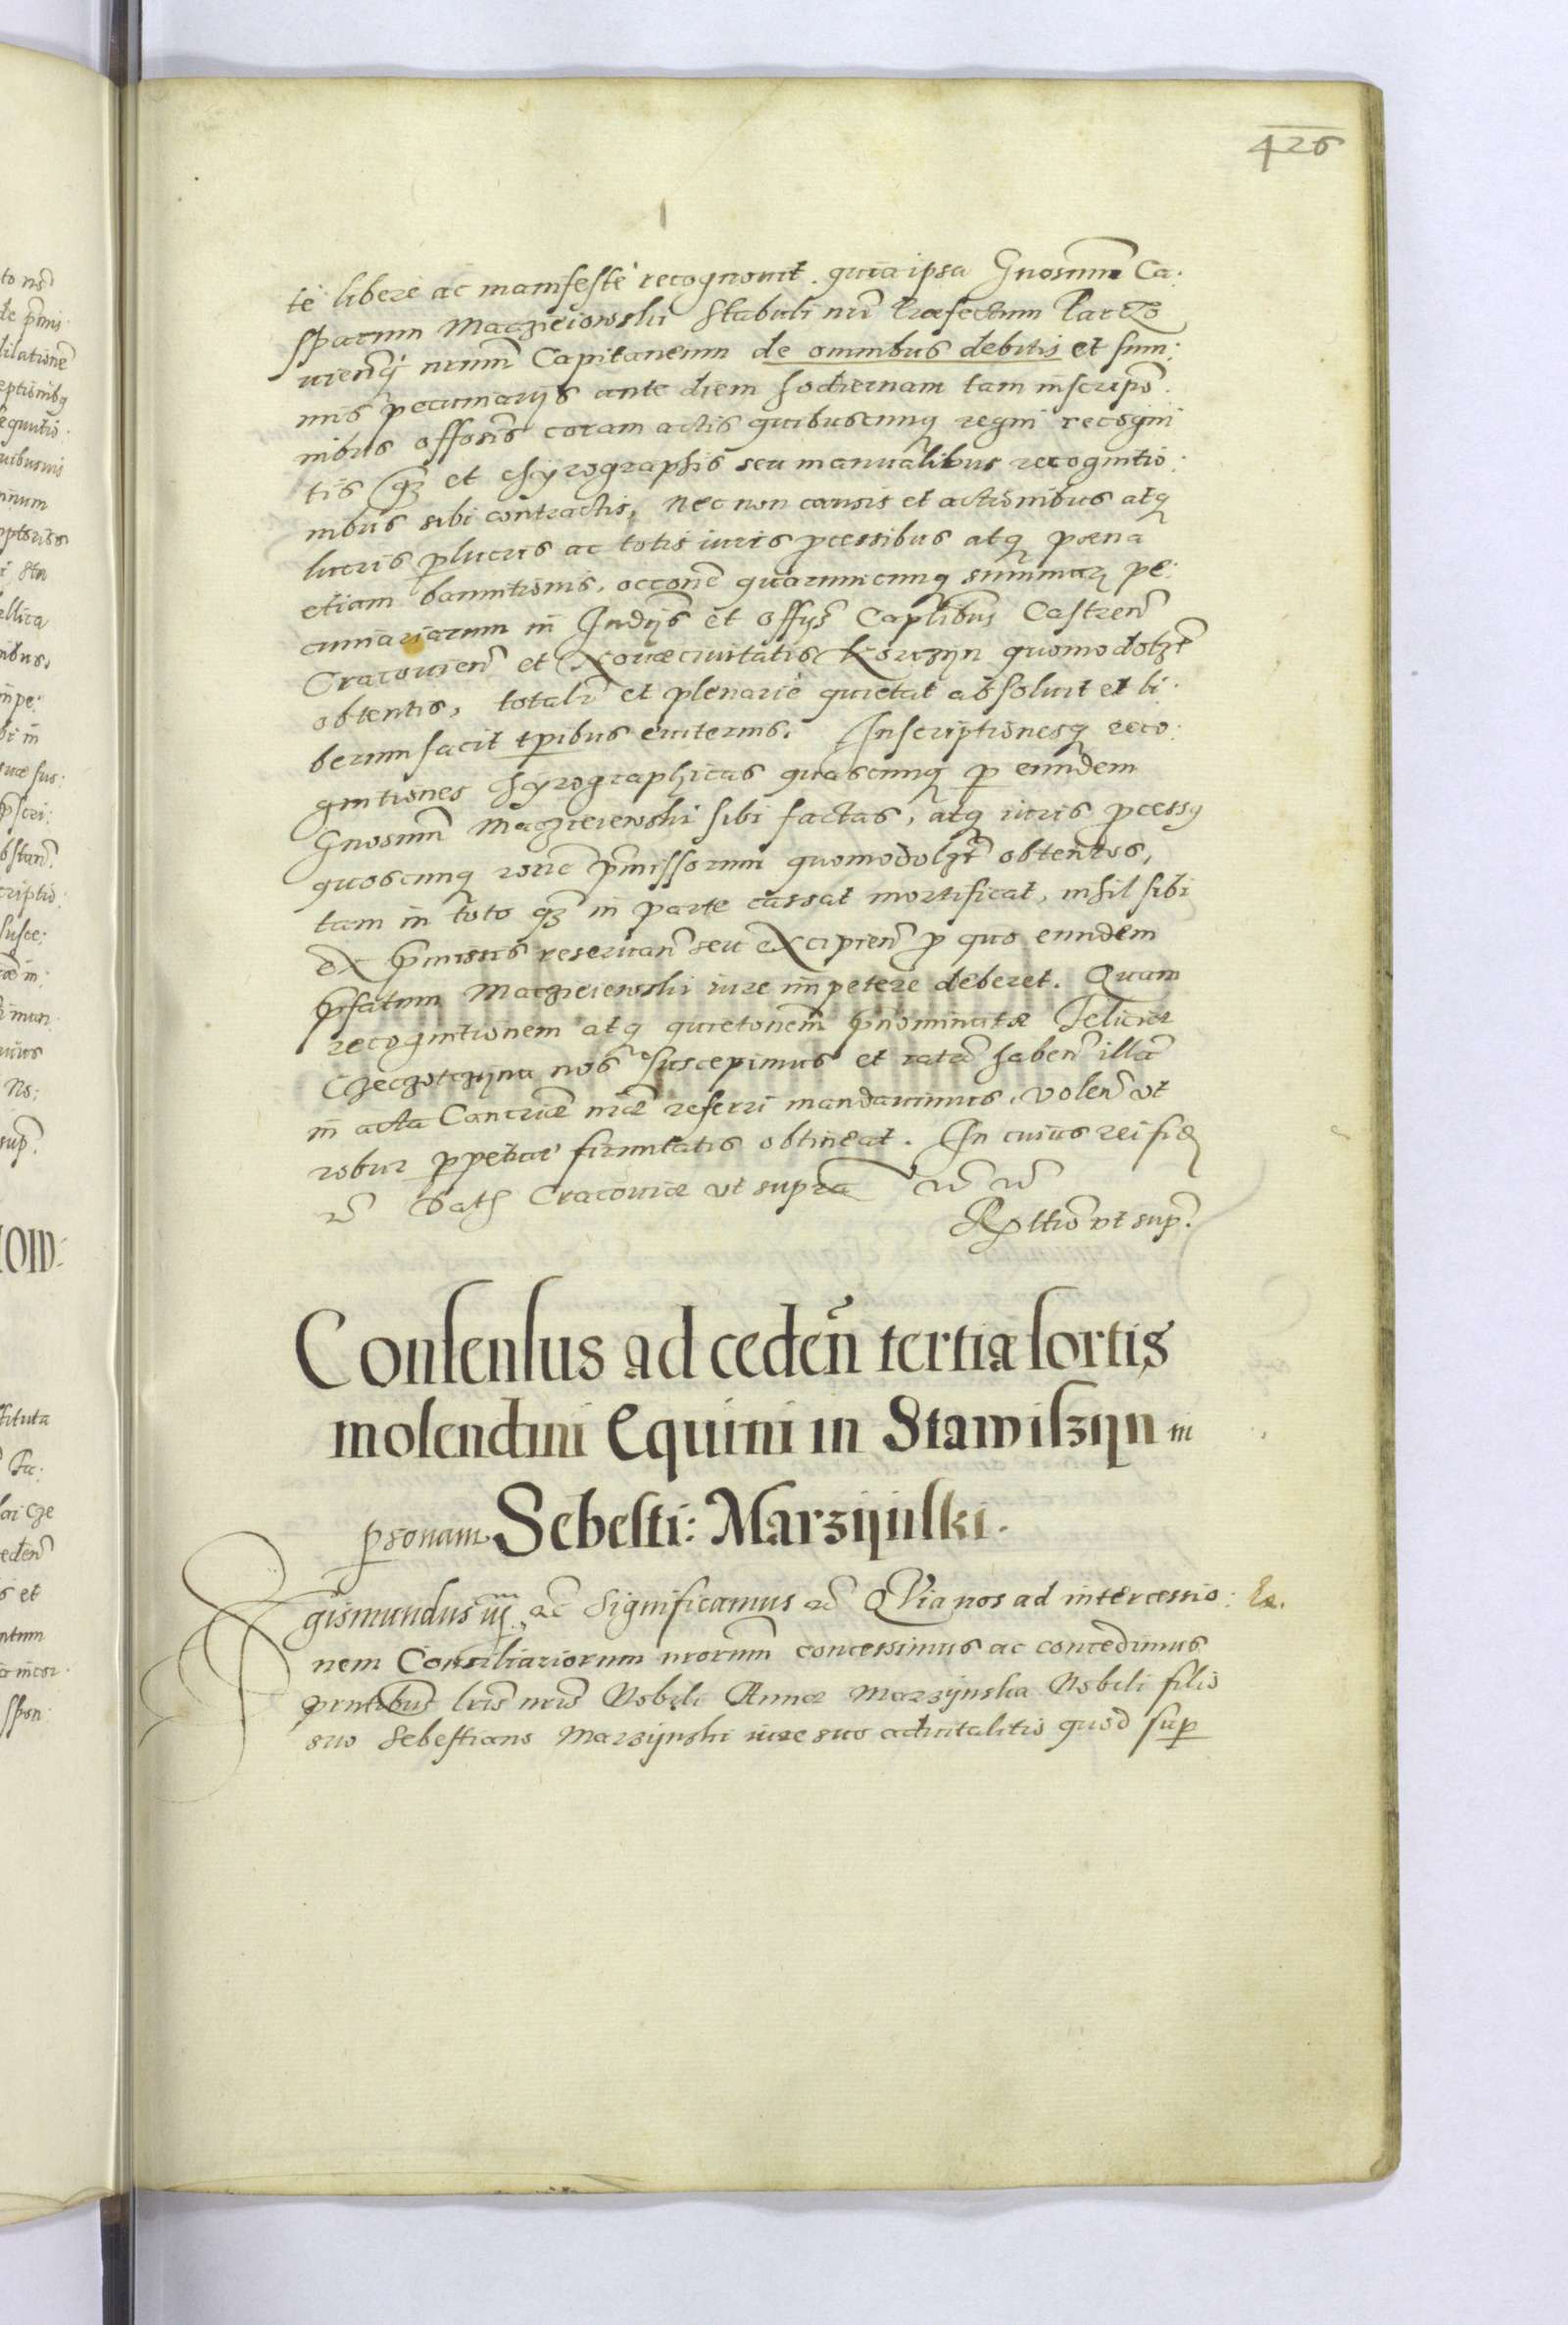 426
te libere ac manifeste recognovit. quia ipsa Gnosum̃ Ca:
sparum Maczieiowski Stabuli nr̃i Præfectum Parczo
vien̄q nrum̃ Capitaneum de omnibus debitis et sum:
mis pecuniarijs ante diem hodiernam tam inscripõ:
nibus offosis coram actis quibuscunq regni recogni
tis q̃z et chyrographis seu manualibus recognitio:
nibus sibi contractis, nec non causis et actionibus atq
lucris perlucris ac totis iuris p̃cessibus atq pœna
etiam bannitionis, occõne quarumcunq summar̃ pe:
cuniariarum in Iudijs et offijs Captlibus Castren̄
Cracovien̄ et Novæcivitatis Korczyn quomodolzt̃
obtentis, totalr̃ et plenarie quietat absolvit et li:
berum facit tp̃ibus eviternis. Inscriptionesq reco:
gnitiones chyrographicas quascunq per eundem
Gnosum̃ Maczieiewski sibi factas, atq iuris p̃cessus
quoscunq rone p̃missorum quomodolzt̃ obtentos,
tam in toto q̃z in parte cassat mortificat, nihil sibi
ex p̃missis reservan̄ seu excipien̄ p̃ quo eundem
p̃fatum Maczieiewski iure impetere deberet. Quam
recognitionem atq quietonem̃ p̃nominatæ Feliciæ
Czeczotczyna nos suscepimus et ratã haben̄ illã
in acta Cancriæ nr̃æ referri mandavimus, volen̄ vt
robur perpetuæ firmitatis obtineat. In cuius rei fidẽ
etc̃ Dat̃ Cracoviæ vt supra etc̃ etc̃
Rltio vt sup̃.
Consensus ad ceden̄ tertiæ sortis
molendini Equini in Stawiszyn in
personam Sebesti: Marzyński.
Sigismundus iij. etc̃ Significamus etc̃ QVia nos ad intercessio:
nem Consiliariorum nrorum̃ concessimus ac concedimus
prntibus lris nr̃is Nobili Annæ Marzynska Nobili filio
suo Sebestiano Marzynski iure suo advitalitio quod super